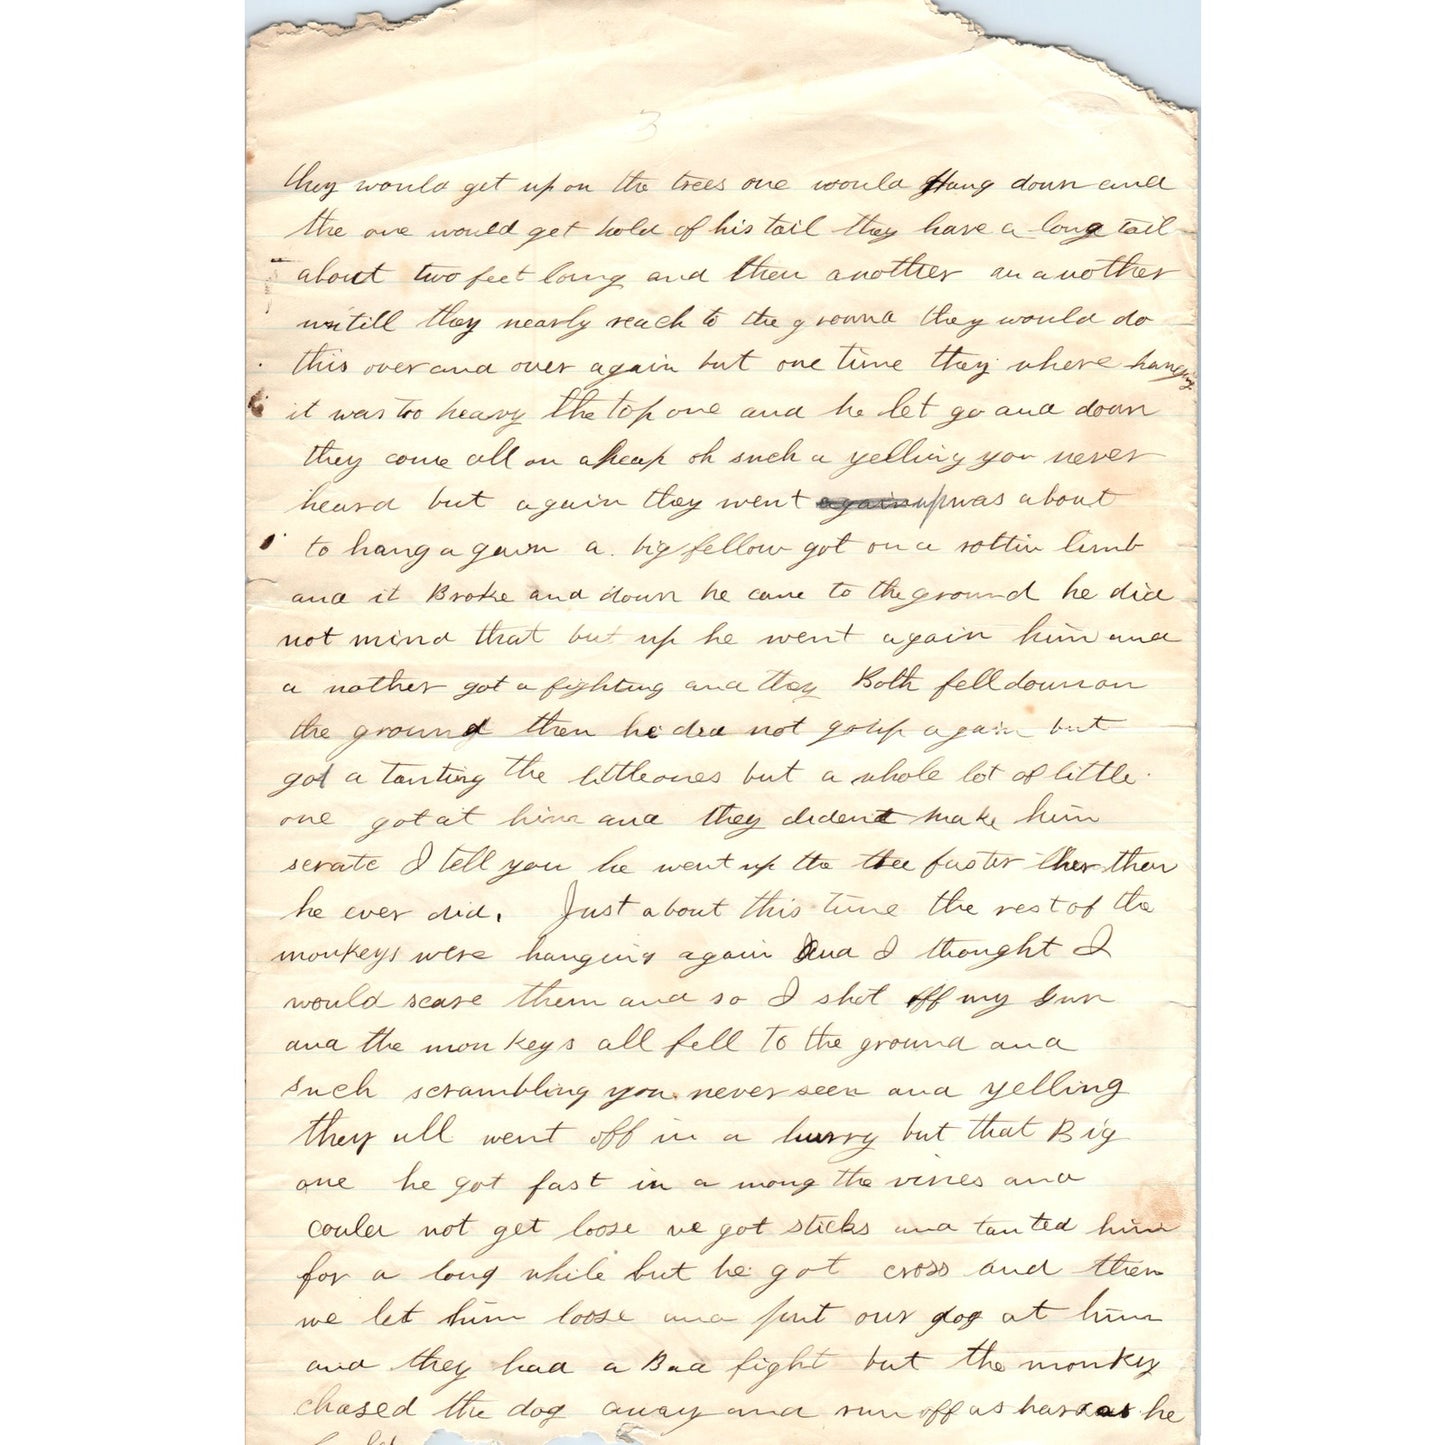 3
they would get up on the trees one would Hang down and
the one would get hold of his tail they have a long tail
about two feet long and then another an another
untill they nearly reach to the ground they would do
this over and over again but one time they where hanging
it was too heavy the top one and he let go and down
they come all on a heap oh such a yelling you never
heard but again they went again up was about
to hang again a big fellow got on a rottin limb
and it Broke and down he came to the ground he did
not mind that but up he went again him and
a nother got a fighting and they Both fell down on
the ground then he did not go up again but
got a tanting the little ones but a whole lot of little
one got at him and they dident make him
scratc I tell you he went up the tree faster ther than
he ever did. Just about this time the rest of the
monkeys were hanging again And I thought I
would scare them and so I shot off my Gun
and the monkeys all fell to the ground and
such scrambling you never seen and yelling
they all went off in a hurry but that Big
one he got fast in a mong the vines and
could not get loose we got sticks and tanted him
for a long while but he got cross and then
we let him loose and put our dog at him
and they had a Bad fight but the monkey
chased the dog away and run off as hard as he